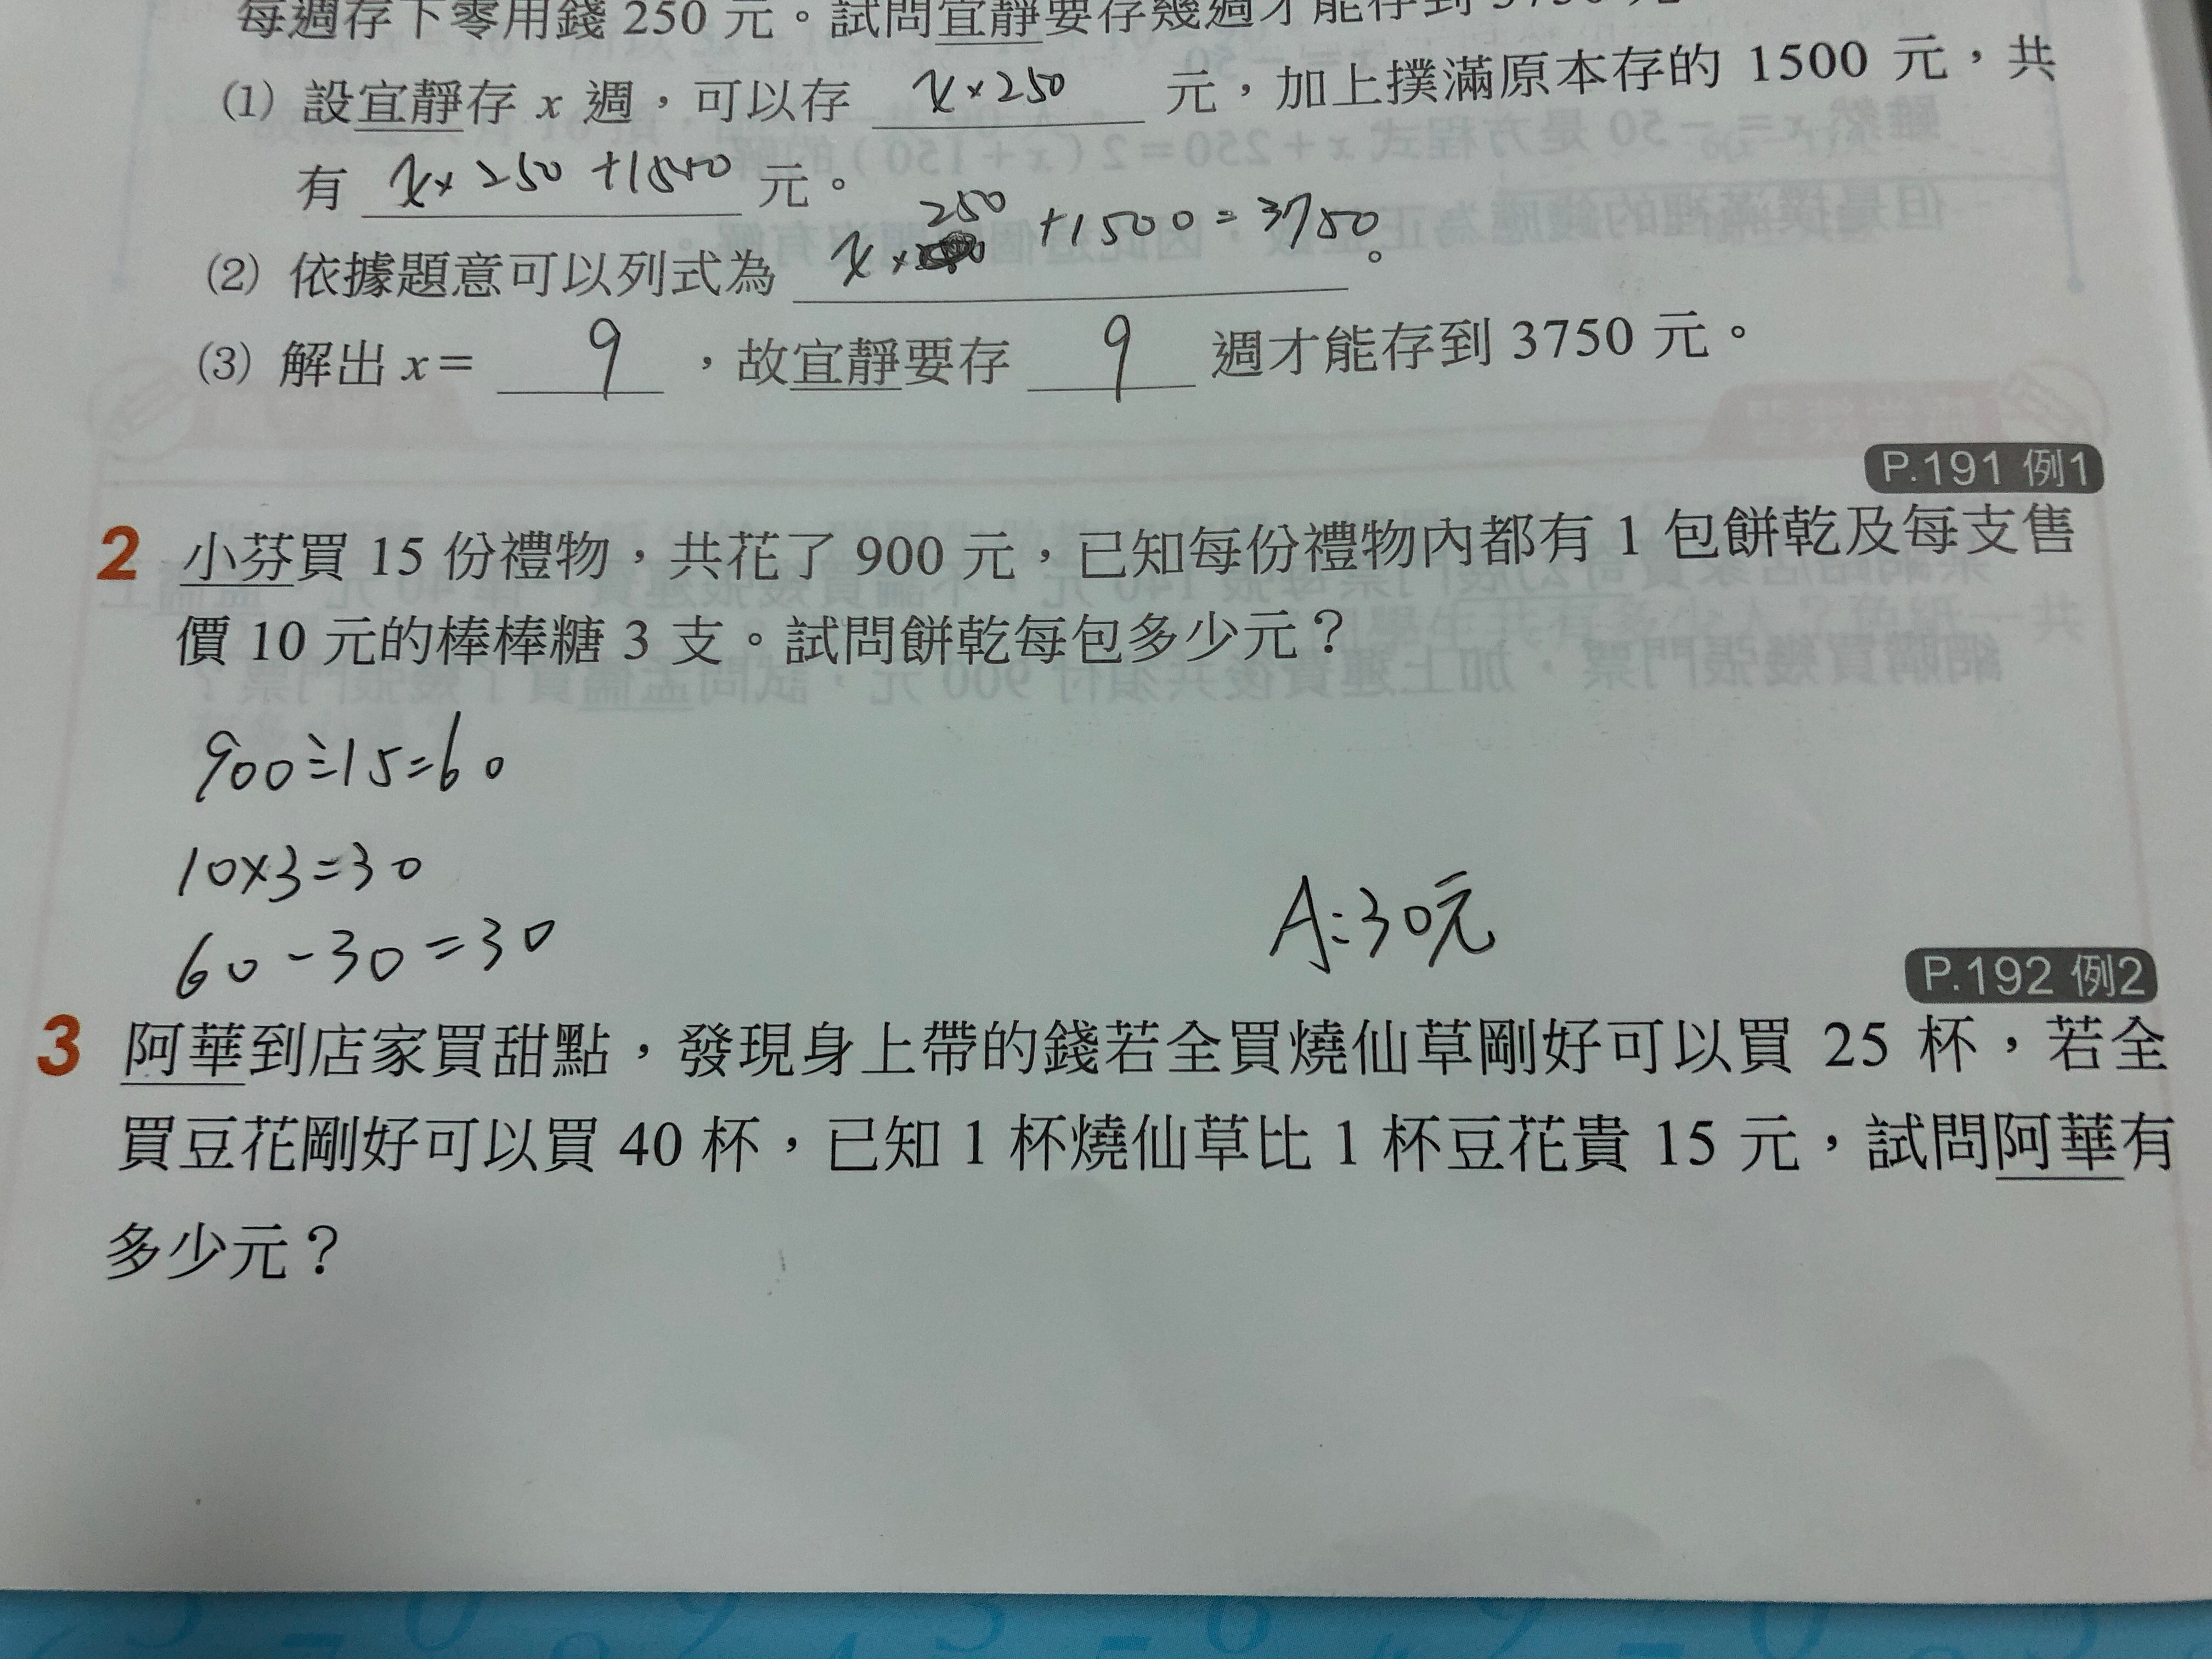 每週存下零用錢 250 元。試問宜靜要存幾週才能存到 3750 元
(1) 設宜靜存 x 週，可以存 x×250 元，加上撲滿原本存的 1500 元，共
有 x×250+1500 元。
(2) 依據題意可以列式為 x×250+1500=3750。
(3) 解出 x= 9 ，故宜靜要存 9 週才能存到 3750 元。
P.191 例1
2 小芬買 15 份禮物，共花了 900 元，已知每份禮物內都有 1 包餅乾及每支售
價 10 元的棒棒糖 3 支。試問餅乾每包多少元？
900÷15=60
10×3=30
60-30=30
A:30元
P.192 例2
3 阿華到店家買甜點，發現身上帶的錢若全買燒仙草剛好可以買 25 杯，若全
買豆花剛好可以買 40 杯，已知 1 杯燒仙草比 1 杯豆花貴 15 元，試問阿華有
多少元？